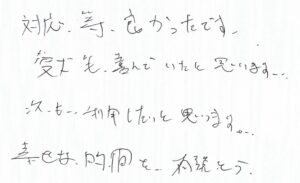 対応、等、良かったです。
愛犬も、喜んでいたと思います...
次も...利用したいと思います。...
幸せな時間を、有難う。